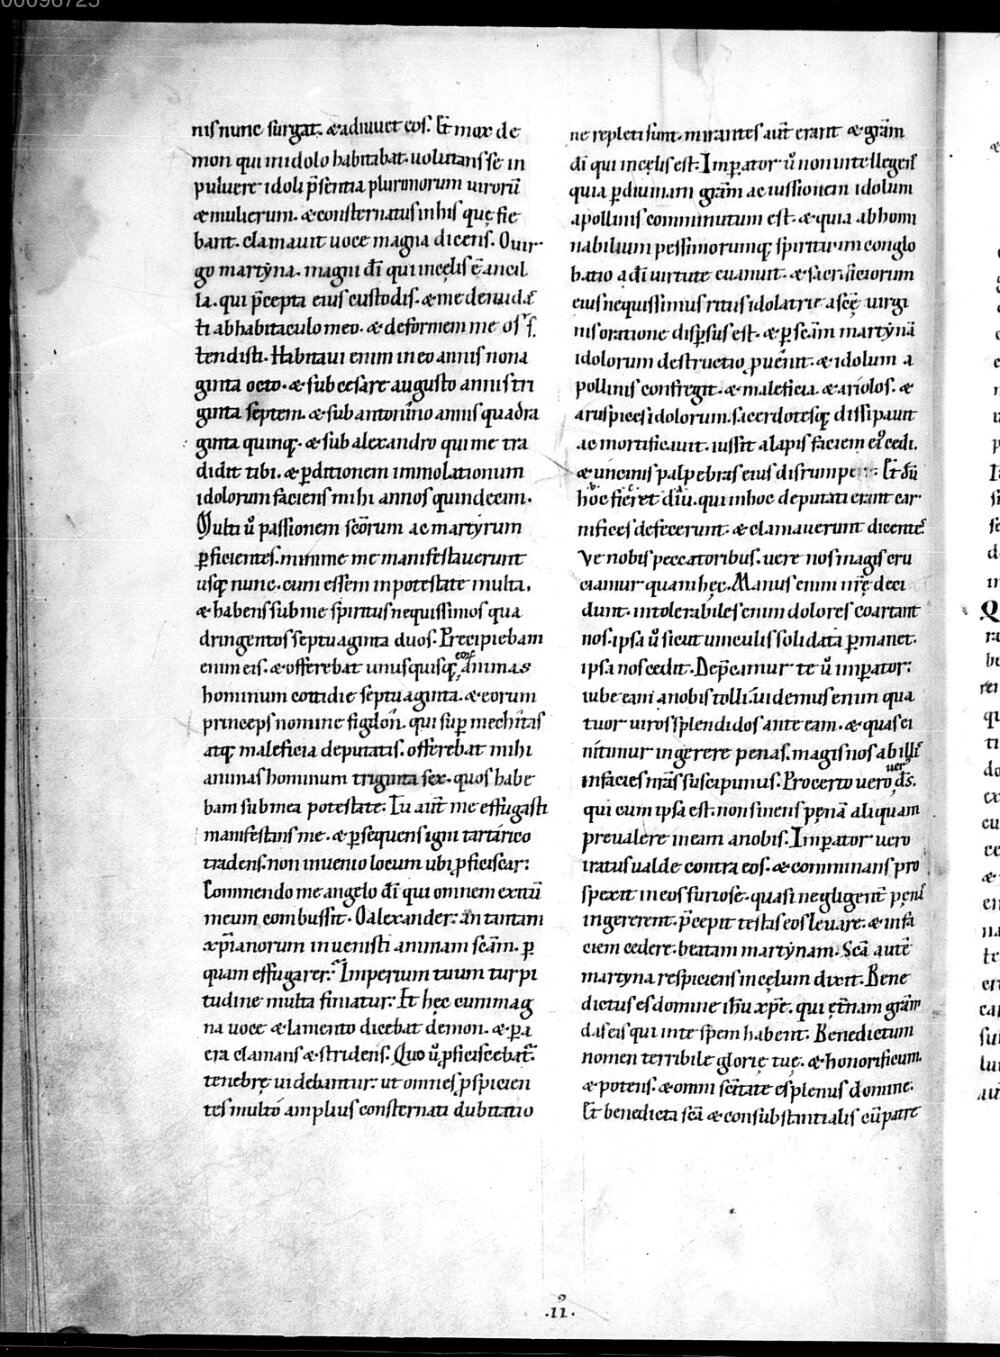 00098725
nis nunc surgat. & adiuuet eos. Et mox de
mon qui in idolo habitabat. uolutans se in
puluere idoli p̄sentia plurimorum uirorū
& mulierum. & consternatus in his quę fie
bant. clamauit uoce magna dicens. O uir
go martẏna. magni dī qui in cęlis ē ancil
la. qui p̄cepta eius custodis. & me denudas
ti ab habitaculo meo. & deformem me os
tendisti. Habitaui enim in eo annis nona
ginta octo. & sub cesare augusto annis tri
ginta septem. & sub antonino annis quadra
ginta quinq;. & sub alexandro qui me tra
didit tibi. & ꝑditionem immolationum
idolorum faciens mihi annos quindecim.
Multi ū passionem scōrum ac martyrum
ꝑficientes. minime me manifestauerunt
usq; nunc. cum essem in potestate multa.
& habens sub me spiritus nequissimos qua
dringentos septuaginta duos. Precipiebam
enim eis. & offerebat unusquisq; eorū animas
hominum cottidie septuaginta. & eorum
princeps nomine sigdon. qui sup mechitas
atq; maleficia deputatis. offerebat mihi
animas hominum triginta sex. quos habe
bam sub mea potestate. Tu aut me effugasti
manifestans me. & ꝑsequens igni tartarico
tradens. non inuenio locum ubi ꝓficiscar.
Commendo me angelo dī qui omnem exitū
meum combussit. O alexander. an tantam
xp̄ianorum inuenisti animam scām. ꝑ
quam effugarer. Imperium tuum turpi
tudine multa finiatur. Et hęc cum mag
na uoce & lamento dicebat demon. & ꝑ a
era clamans & stridens. Quo ū ꝓficiscebat.
tenebrę uidebantur. ut omnes ꝓspicien
tes multo amplius consternati dubitatio
ne repleti sunt. mirantes aut erant & grām
dī qui in cęlis est. Imꝑator ū non intellegens
quia ꝑ diuinam grām ac iussionem idolum
apollinis comminutum est. & quia abhomi
nabilium pessimorumq; spirituum conglo
batio a dī uirtute euanuit. & sacrificiorum
eius nequissimus ritus idolatrie a scę uirgi
nis oratione disꝑsus est. & ꝑ scām martẏnā
idolorum destructio ꝓuenit. & idolum a
pollinis confregit. & maleficia. & ariolos. &
aruspices idolorum. sacerdotesq; dissipauit
ac mortificauit. iussit alapis faciem ei cedi.
& uncinis palpebras eius disrumpe Et dū
hoc fieret diu. qui in hoc deputati erant car
nifices defecerunt. & clamauerunt dicentes
Ve nobis peccatoribus. uere nos magis cru
ciamur quam hęc. Manus enim nrę deci
dunt. intolerabiles enim dolores coartant
nos. ipsa ū sicut uinculis solidata ꝑmanet.
ipsa nos cedit. Dep̄camur te ū imꝑator.
iube eam a nobis tolli. uidemus enim qua
tuor uiros splendidos ante eam. & quas ei
nitimur ingerere penas. magis nos ab illis
in facies nrās suscipimus. Pro certo uero uerꝰ ds.
qui cum ipsa est. non sinens penā aliquam
preualere in eam a nobis. Imꝑator uero
iratus ualde contra eos. & comminans pro
spexit in eos furiose. quasi negligent penas
ingererent. p̄cepit testas eos leuare. & in fa
ciem cedere. beatam martẏnam. Scā autē
martyna respiciens in cęlum dixit. Bene
dictus es domine ihū xp̄e. qui etnam grām
das eis qui in te spem habent. Benedictum
nomen terribile glorię tuę. & honorificum.
& potens. & omni scītate es plenus domine.
Et benedicta scā & consubstantialis cū patre
.ii.